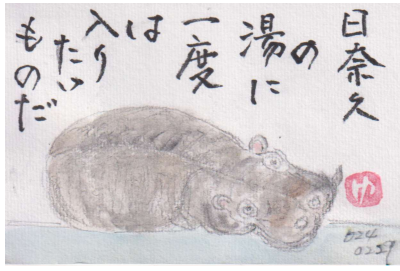 日奈久
の
湯に
一度
は
入り
たい
ものだ
け
024
0229